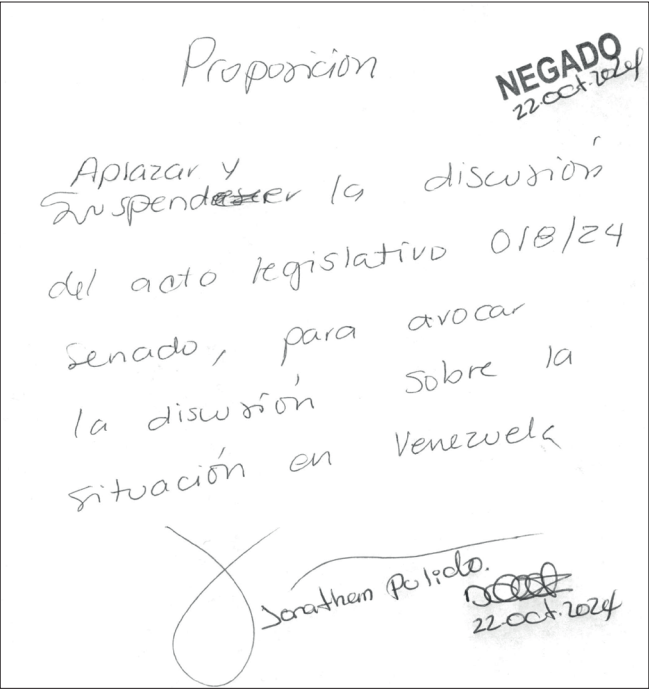 Proposicion
NEGADO
22.oct.2024
Aplazar y
Suspender la discusión
del acto legislativo 018/24
Senado, para avocar
la discusión sobre la
situación en Venezuela
Jonathan Pulido.
22.oct.2024